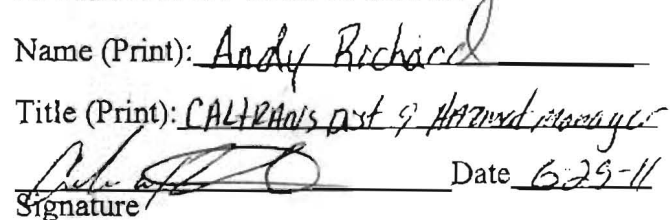 Name (Print): Andy Richard
Title (Print): CALTRANS Dist 9 HAZMAT manager
Date 6-29-11
Signature